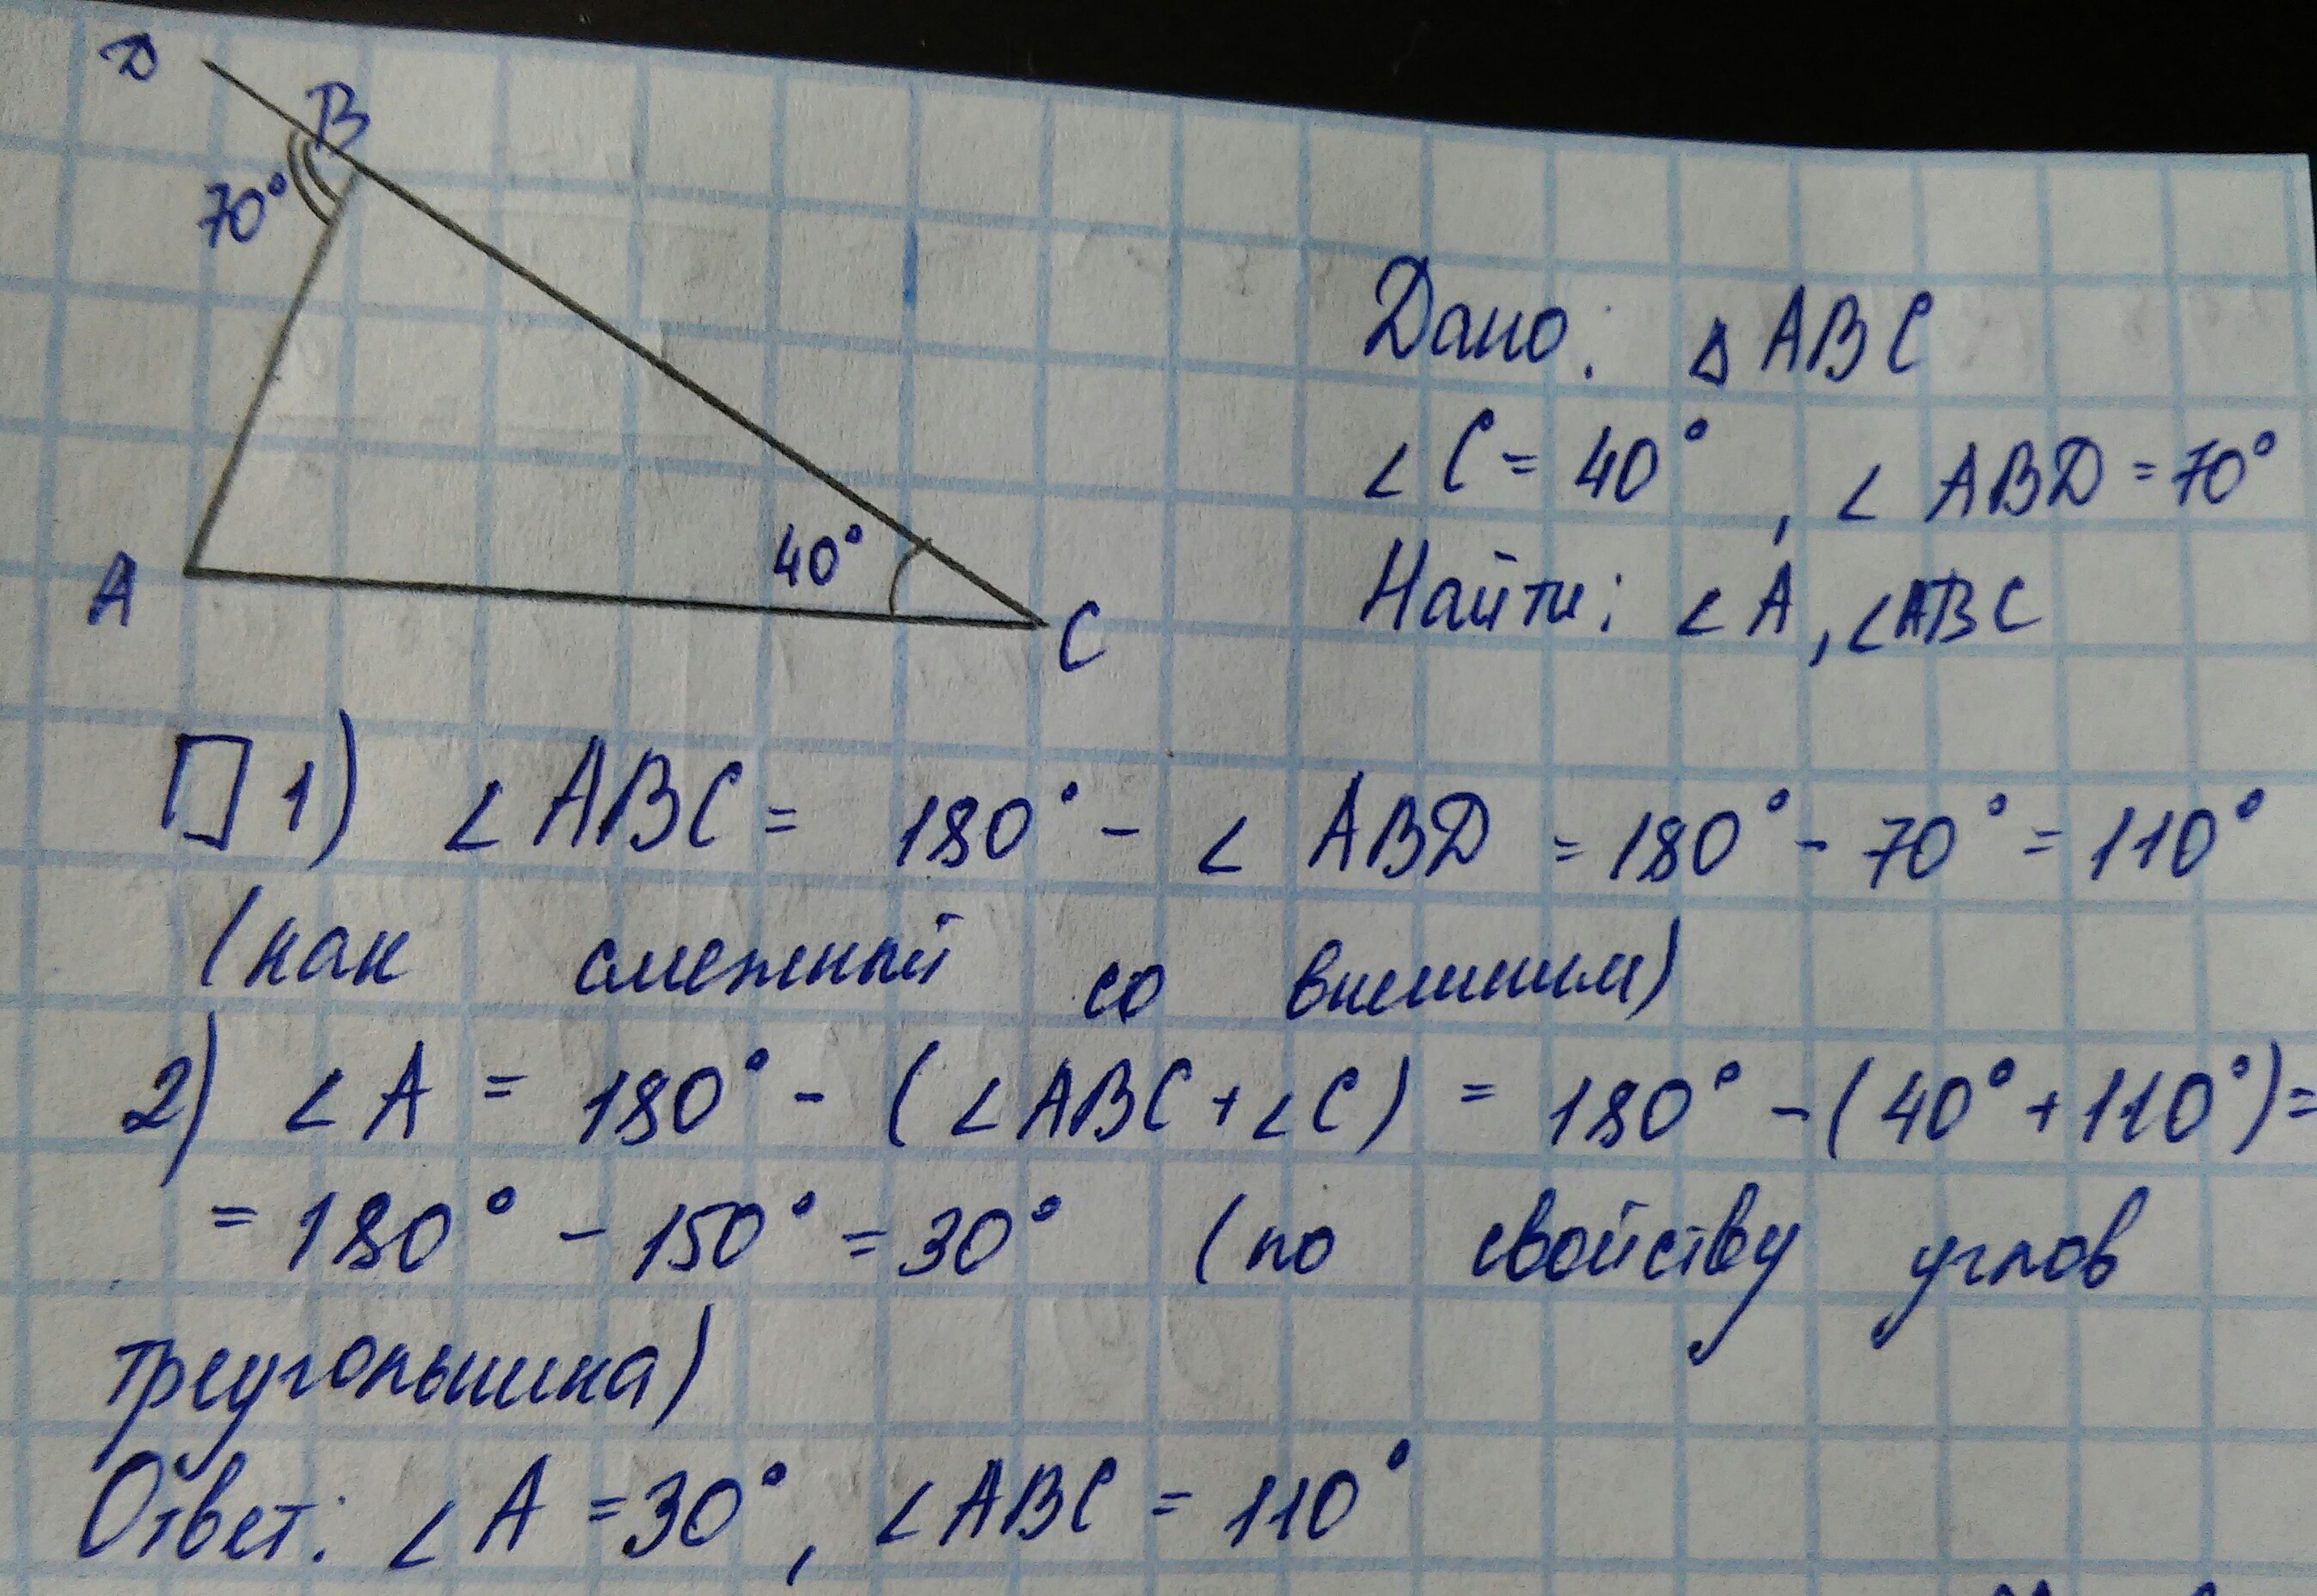 D
B
70°
A
40°
C
Дано: △ABC
∠C = 40°, ∠ABD = 70°
Найти: ∠A, ∠ABC
1) ∠ABC = 180° - ∠ABD = 180° - 70° = 110°
(как смежный со внешним)
2) ∠A = 180° - (∠ABC + ∠C) = 180° - (40° + 110°) =
= 180° - 150° = 30° (по свойству углов
треугольника)
Ответ: ∠A = 30°, ∠ABC = 110°